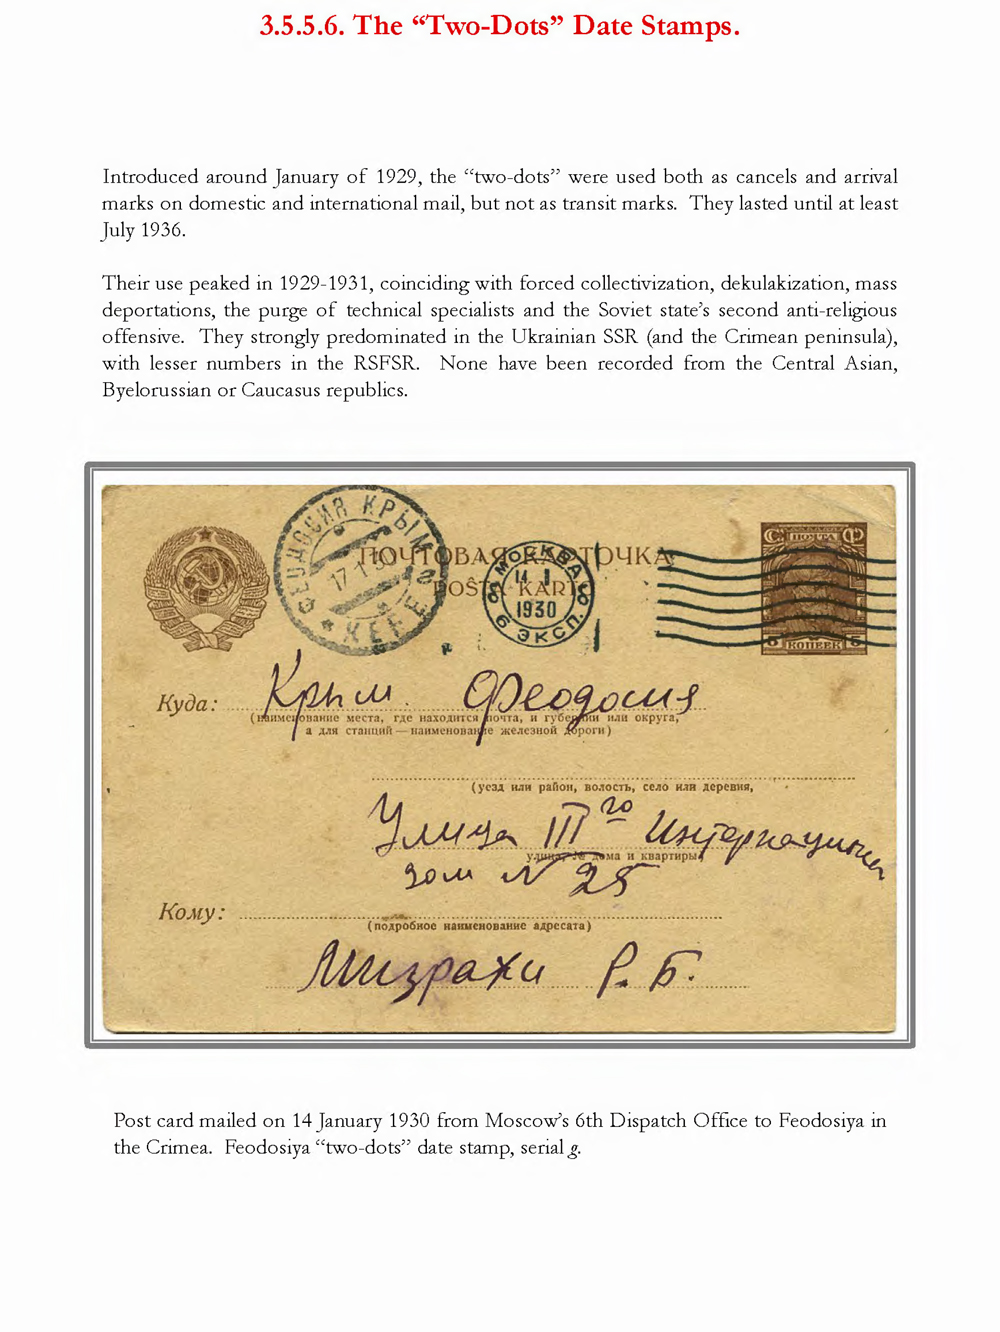 3.5.5.6. The “Two-Dots” Date Stamps.
Introduced around January of 1929, the “two-dots” were used both as cancels and arrival
marks on domestic and international mail, but not as transit marks. They lasted until at least
July 1936.
Their use peaked in 1929-1931, coinciding with forced collectivization, dekulakization, mass
deportations, the purge of technical specialists and the Soviet state’s second anti-religious
offensive. They strongly predominated in the Ukrainian SSR (and the Crimean peninsula),
with lesser numbers in the RSFSR. None have been recorded from the Central Asian,
Byelorussian or Caucasus republics.
ФЕОДОСИЯ КРЫМ
17.1.3
KEFE
ПОЧТОВАЯ КАРТОЧКА
POSTA KARTA
МОСКВА
14 I
1930
6 ЭКСП.
ПОЧТА
5 КОПЕЕК 5
Куда: Крым Феодосия
(наименование места, где находится почта, и губернии или округа,
а для станций — наименование железной дороги)
(уезд или район, волость, село или деревня,
Улица III го Интернационал
улица, № дома и квартиры)
дом N 25
Кому:
(подробное наименование адресата)
Мизрахи Р. Б.
Post card mailed on 14 January 1930 from Moscow’s 6th Dispatch Office to Feodosiya in
the Crimea. Feodosiya “two-dots” date stamp, serial g.